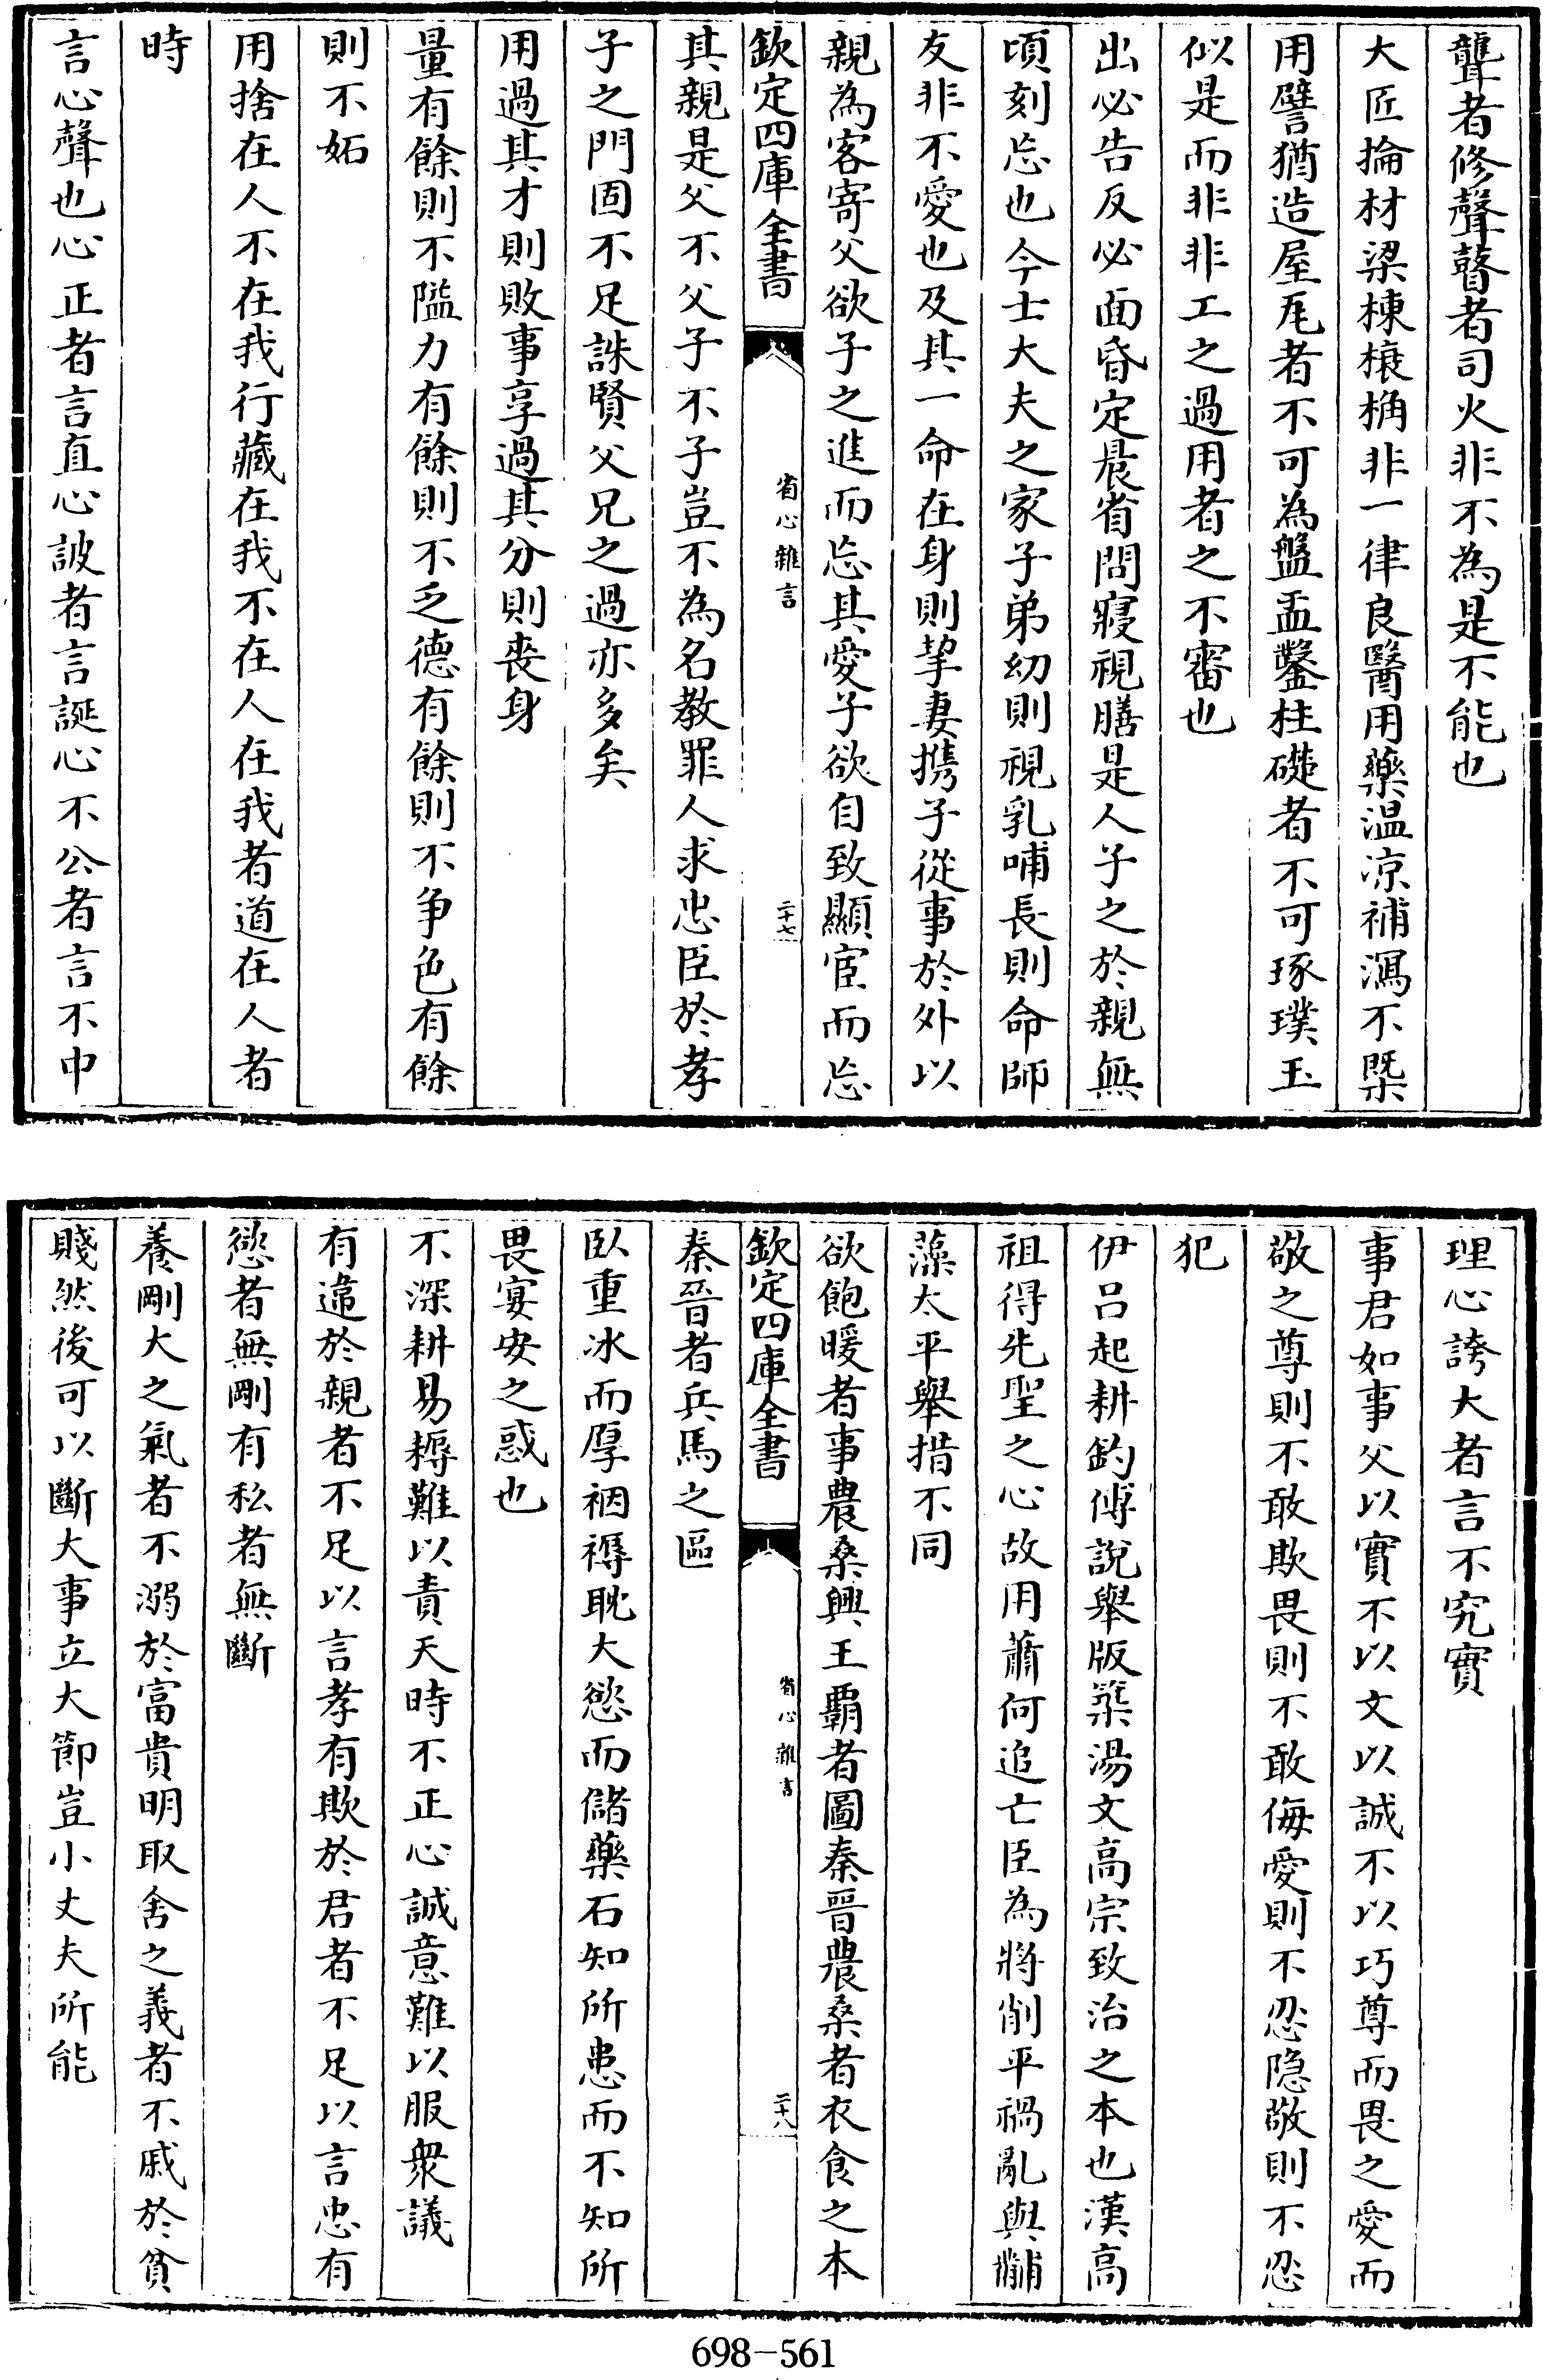 聾者修聲瞽者司火非不為是不能也
大匠掄材梁棟榱桷非一律良醫用藥温凉補瀉不槩
用譬猶造屋𤓰者不可為盤盂鑿柱礎者不可琢璞玉
似是而非非工之過用者之不審也
出必告反必面昏定晨省問寢視膳是人子之於親無
頃刻忘也今士大夫之家子弟幼則視乳哺長則命師
友非不愛也及其一命在身則挈妻携子從事於外以
親為客寄父欲子之進而忘其愛子欲自致顯宦而忘
欽定四庫全書
省心雜言
二十七
其親是父不父子不子豈不為名教罪人求忠臣於孝
子之門固不足誅賢父兄之過亦多矣
用過其才則敗事享過其分則喪身
量有餘則不隘力有餘則不乏德有餘則不争色有餘
則不妬
用捨在人不在我行藏在我不在人在我者道在人者
時
言心聲也心正者言直心詖者言誕心不公者言不中
理心誇大者言不究實
事君如事父以實不以文以誠不以巧尊而畏之愛而
敬之尊則不敢欺畏則不敢侮愛則不忍隐敬則不忍
犯
伊吕起耕釣傅說舉版築湯文高宗致治之本也漢高
祖得先聖之心故用蕭何追亡臣為將削平禍亂與黼
藻太平舉措不同
欲飽暖者事農桑興王覇者圖秦晉農桑者衣食之本
欽定四庫全書
省心雜言
二十八
秦晉者兵馬之區
臥重冰而厚裀褥耽大慾而儲藥石知所患而不知所
畏宴安之惑也
不深耕易耨難以責天時不正心誠意難以服衆議
有違於親者不足以言孝有欺於君者不足以言忠有
慾者無剛有私者無斷
養剛大之氣者不溺於富貴明取舍之義者不戚於貧
賤然後可以斷大事立大節豈小丈夫所能
698-561